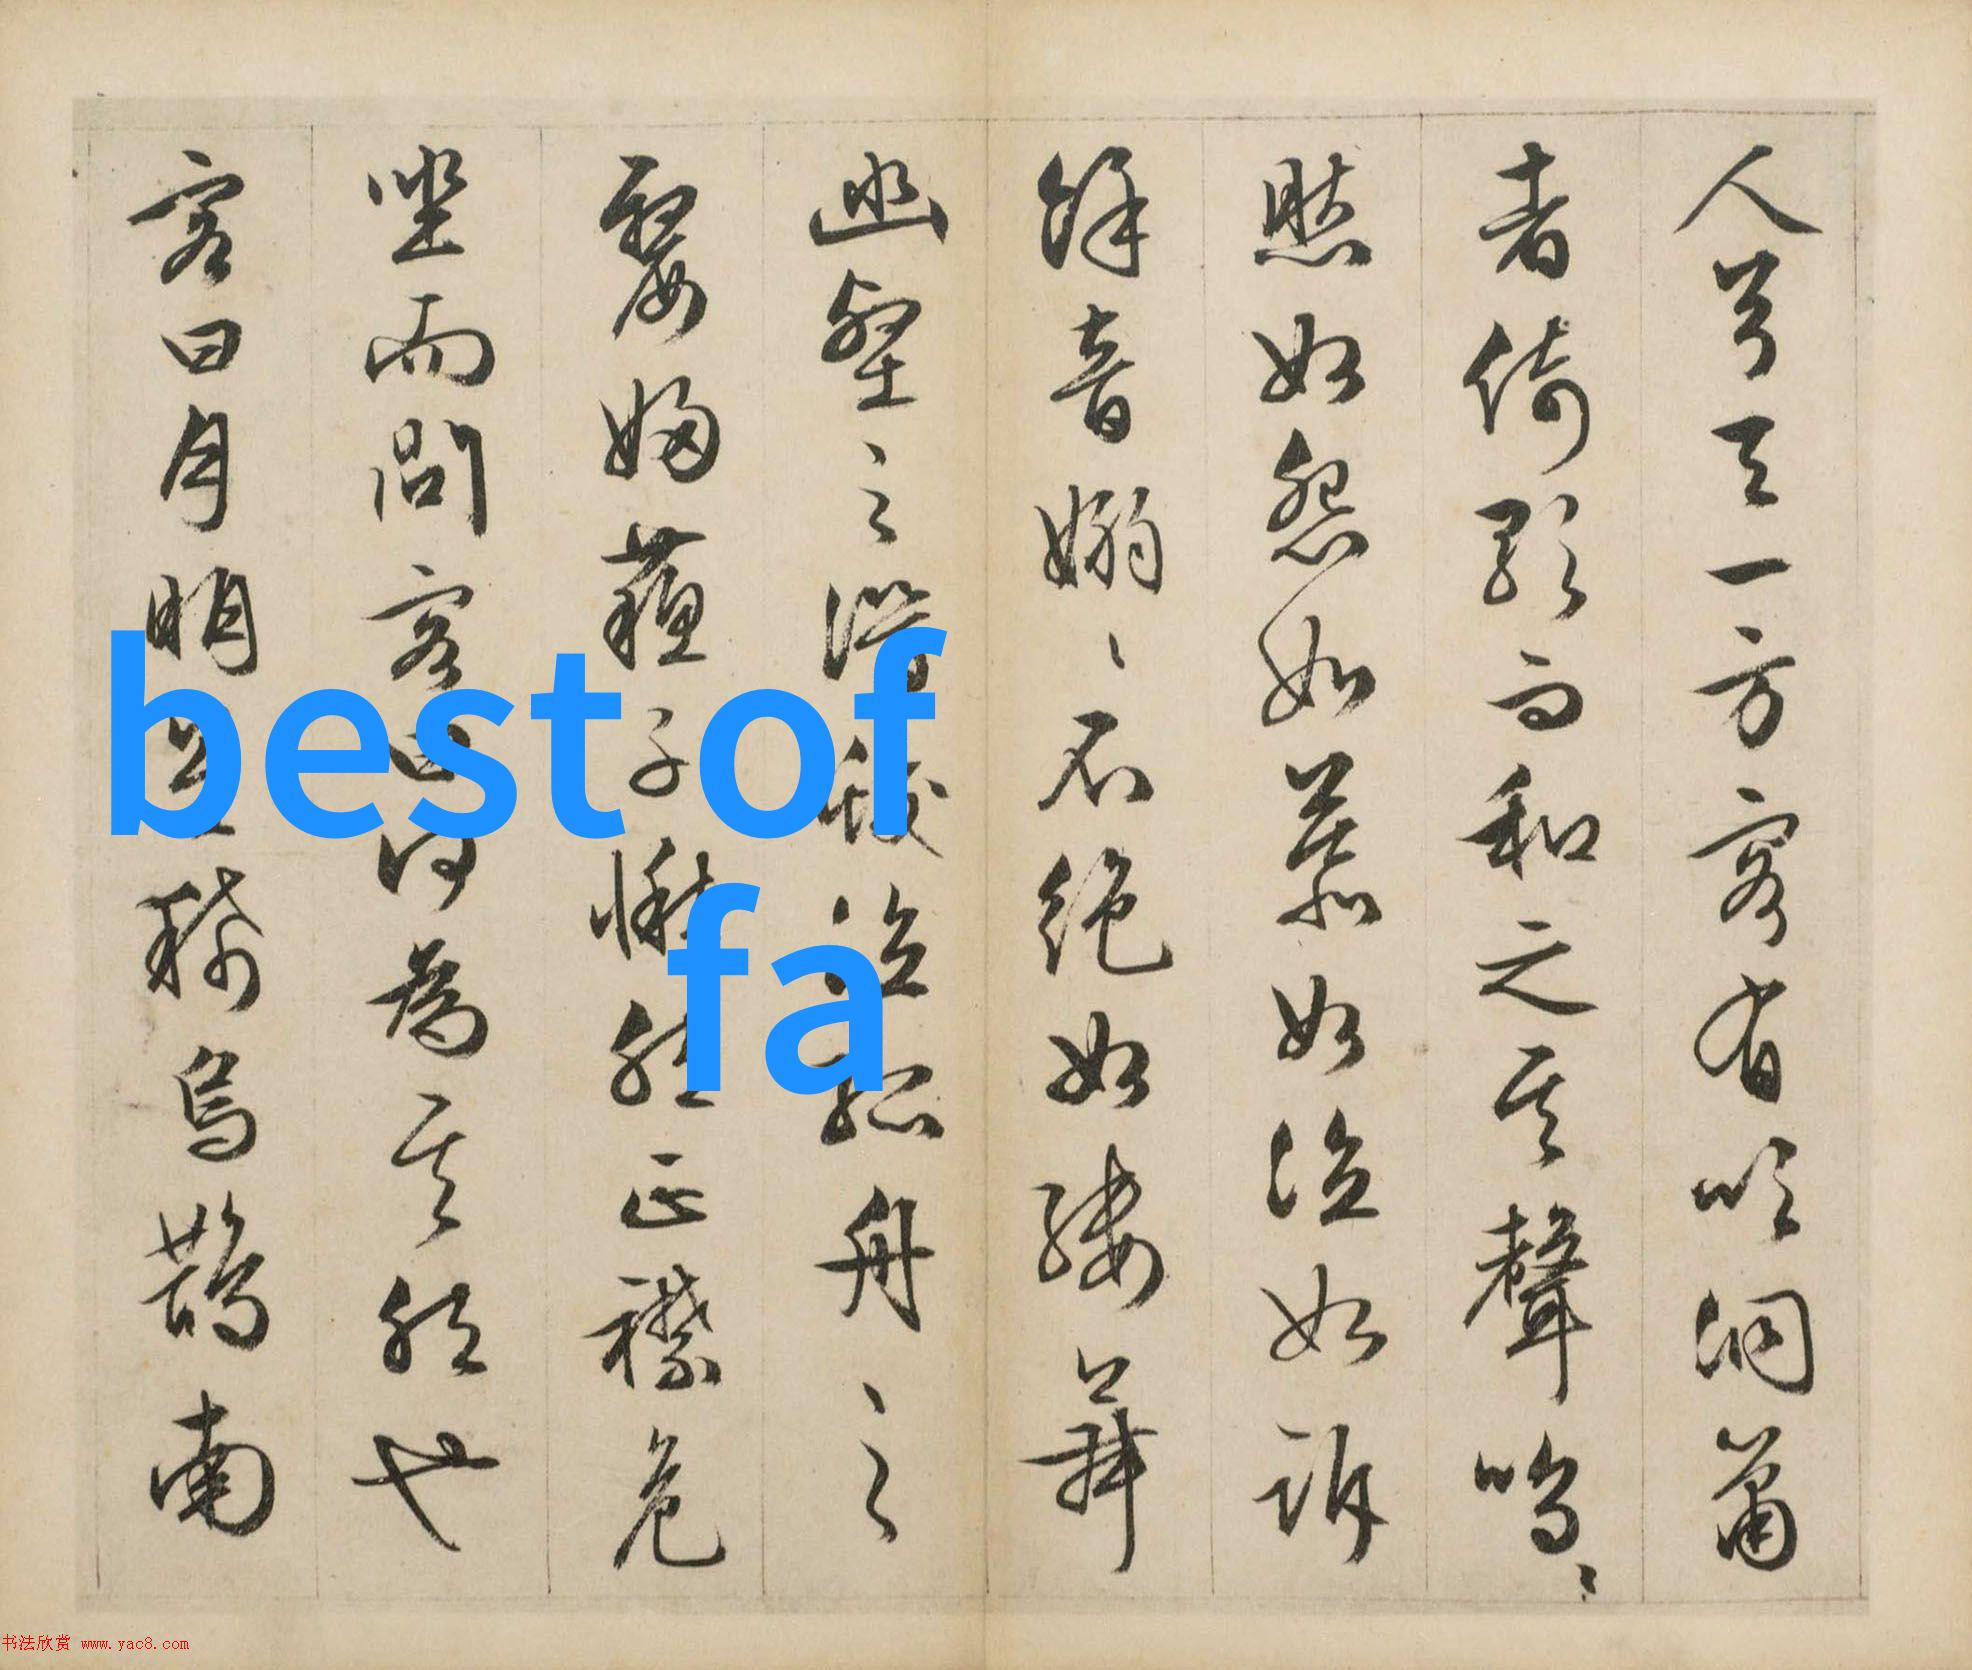 人兮天一方客有吹洞簫
者倚歌而和之其聲嗚〻
然如怨如慕如泣如訴
餘音嫋〻不絕如縷舞
幽壑之潛蛟泣孤舟之
嫠婦蘇子愀然正襟危
坐而問客曰何為其然也
客曰月明星稀烏鵲南
best of
fa
书法欣赏 www.yac8.com